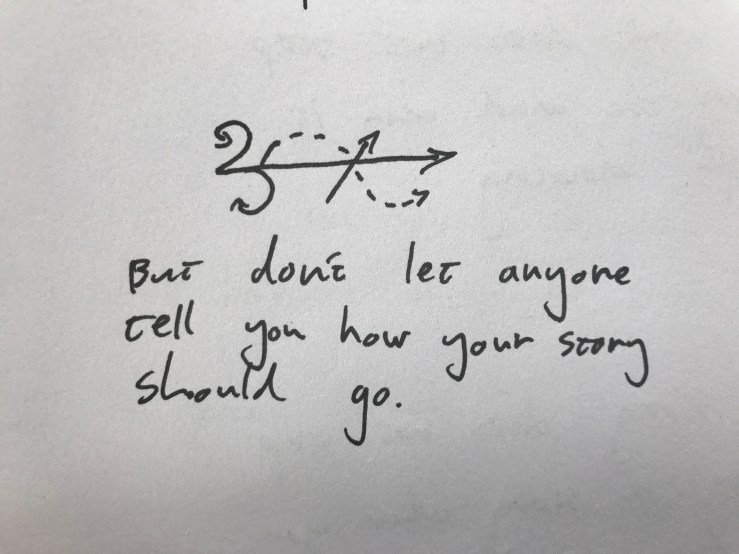 But don't let anyone
tell you how your story
should go.